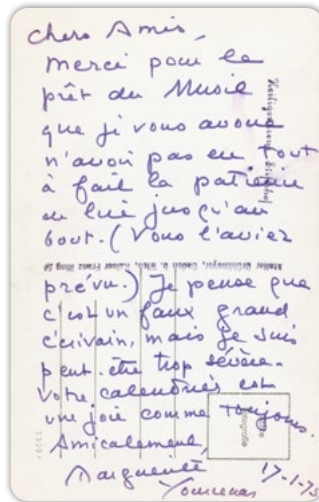 chers Amis,
merci pour le
prêt du Musil
que je vous avoue
n'avoir pas eu tout
à fait la patience
de lire jusqu'au
bout. (Vous l'aviez
prévu.) Je pense que
c'est un faux grand
écrivain, mais je suis
peut-être trop sévère.
Votre calendrier est
une joie comme toujours.
Amicalement,
Marguerite
Yourcenar
17-1-75
Heiligenkreuz
Kaiser Franz Ring